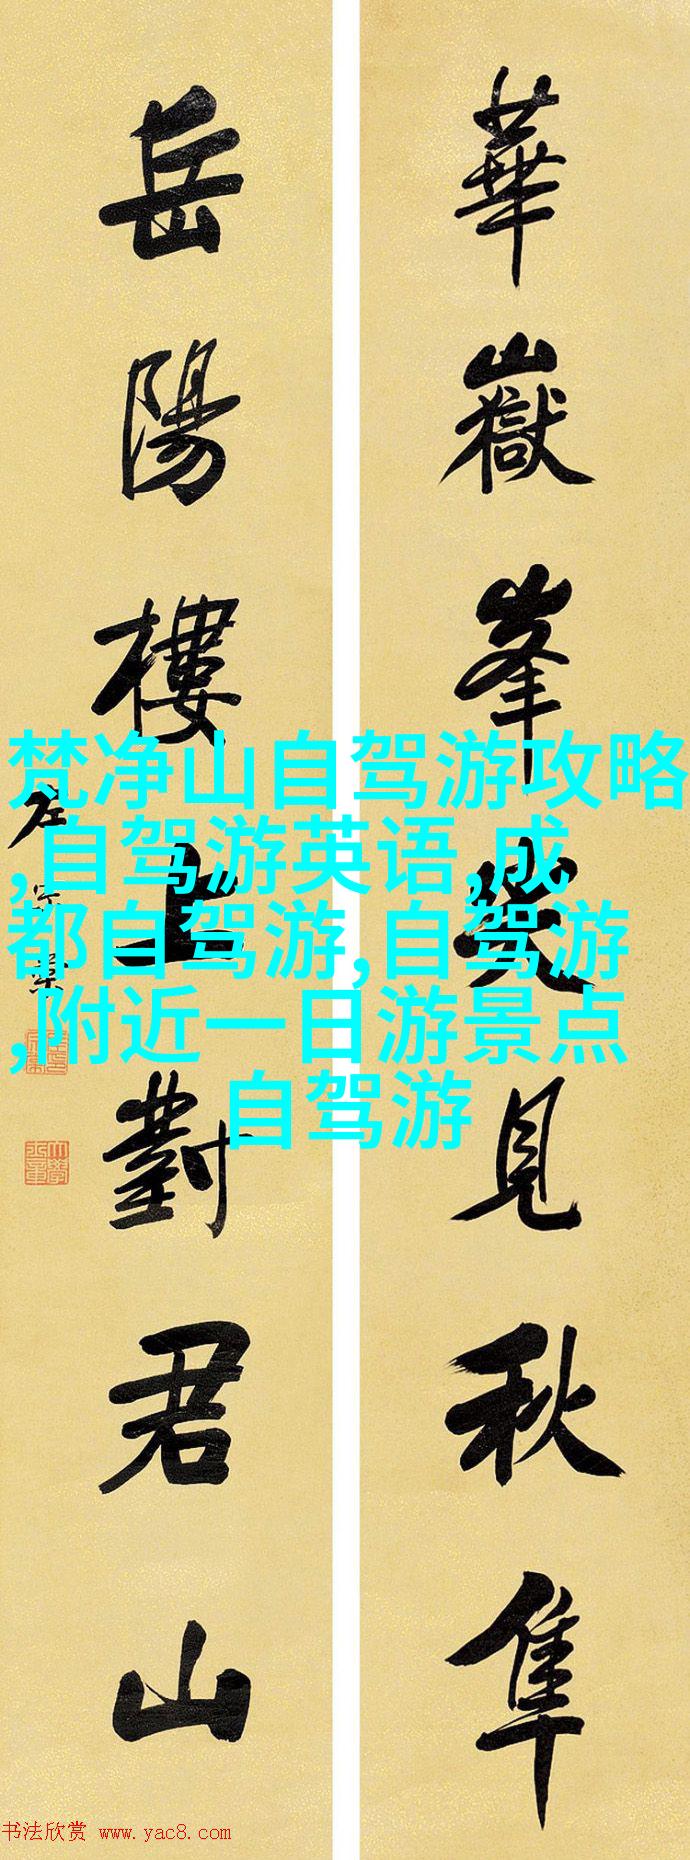 華嶽峯尖見秋隼
岳陽樓上對君山
左宗棠
梵净山自驾游攻略
,自驾游英语,成
都自驾游,自驾游
,附近一日游景点
自驾游
书法欣赏 www.yac8.com